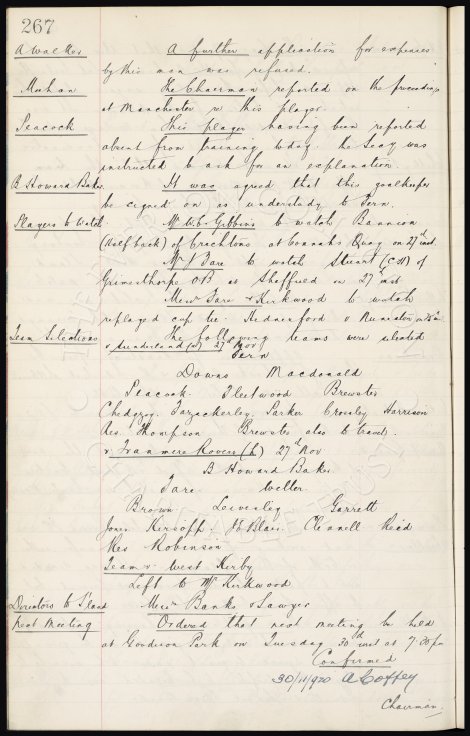 267
A Walker A further application for expenses
by this man was refused.
Meehan The Chairman reported on the proceedings
at Manchester re this player.
Peacock This player having been reported
absent from training today. the Secy was
instructed to ask for an explanation
B Howard Baker It was agreed that this goalkeeper
be signed on as understudy to Fern.
Players to Watch Mr W.C. Gibbins to watch Bannion
(Half back) of Crichtons at Connahs Quay on 27th inst.
Mr J Fare to watch Stuart (C H) of
Grimesthorpe OB at Sheffield on 27th inst
Messrs Fare & Kirkwood to watch
replayed cup tie. Hednesford v Nuneaton on
Team Selections The following teams were selected
v Sunderland (a) 27th Nov
Fern
Downs Macdonald
Peacock Fleetwood Brewster
Chedgzoy Fazackerley Parker Crossley Harrison
Res Thompson Brewster also to travel.
v. Tranmere Rovers (h) 27th Nov
B Howard Baker
Fare Weller
Brown Leivesley Garrett
Jones Kirsopp J E Blair Clennell Reid
Res Robinson
Team v. West Kirby
Left to Mr Kirkwood
Directors to S'land Messrs Banks & Sawyer
Next Meeting Ordered that next meeting be held
at Goodison Park on Tuesday 30th inst at 7.30 pm
Confirmed
30/11/920 A Coffey
Chairman